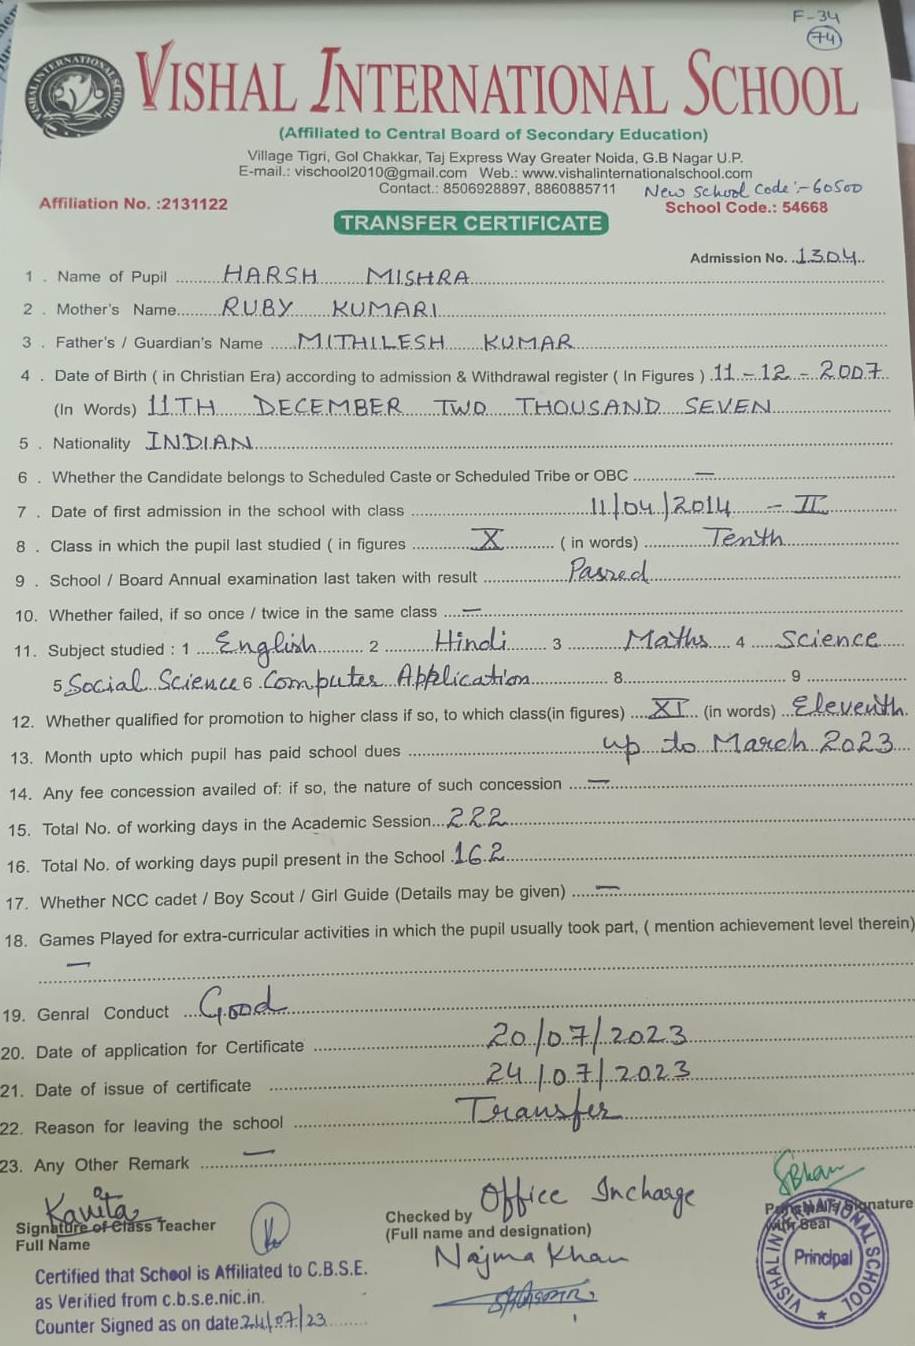 F-34
74
VISHAL INTERNATIONAL SCHOOL
(Affiliated to Central Board of Secondary Education)
Village Tigri, Gol Chakkar, Taj Express Way Greater Noida, G.B Nagar U.P.
E-mail.: vischool2010@gmail.com Web.: www.vishalinternationalschool.com
Contact.: 8506928897, 8860885711 New School Code :- 60500
Affiliation No. :2131122 School Code.: 54668
TRANSFER CERTIFICATE
Admission No. 1304
1 . Name of Pupil HARSH MISHRA
2 . Mother's Name RUBY KUMARI
3 . Father's / Guardian's Name MITHILESH KUMAR
4 . Date of Birth ( in Christian Era) according to admission & Withdrawal register ( In Figures ) 11-12-2007
(In Words) 11TH DECEMBER TWO THOUSAND SEVEN
5 . Nationality INDIAN
6 . Whether the Candidate belongs to Scheduled Caste or Scheduled Tribe or OBC —
7 . Date of first admission in the school with class 11/04/2014 - II
8 . Class in which the pupil last studied ( in figures X ( in words) Tenth
9 . School / Board Annual examination last taken with result Passed
10. Whether failed, if so once / twice in the same class —
11. Subject studied : 1 English 2 Hindi 3 Maths 4 Science
5 Social Science 6 Computer Application 8 9
12. Whether qualified for promotion to higher class if so, to which class(in figures) XI (in words) Eleventh.
13. Month upto which pupil has paid school dues up to March 2023
14. Any fee concession availed of: if so, the nature of such concession —
15. Total No. of working days in the Academic Session 222
16. Total No. of working days pupil present in the School 162
17. Whether NCC cadet / Boy Scout / Girl Guide (Details may be given) —
18. Games Played for extra-curricular activities in which the pupil usually took part, ( mention achievement level therein)
—
19. Genral Conduct Good
20. Date of application for Certificate 20/07/2023
21. Date of issue of certificate 24/07/2023
22. Reason for leaving the school Transfer
23. Any Other Remark —
Kavita
Signature of Class Teacher
Full Name
Checked by Office Incharge
(Full name and designation)
Najma Khan
Signature
with Seal
VISHAL INTERNATIONAL SCHOOL
Principal
Certified that School is Affiliated to C.B.S.E.
as Verified from c.b.s.e.nic.in.
Counter Signed as on date 24/07/23